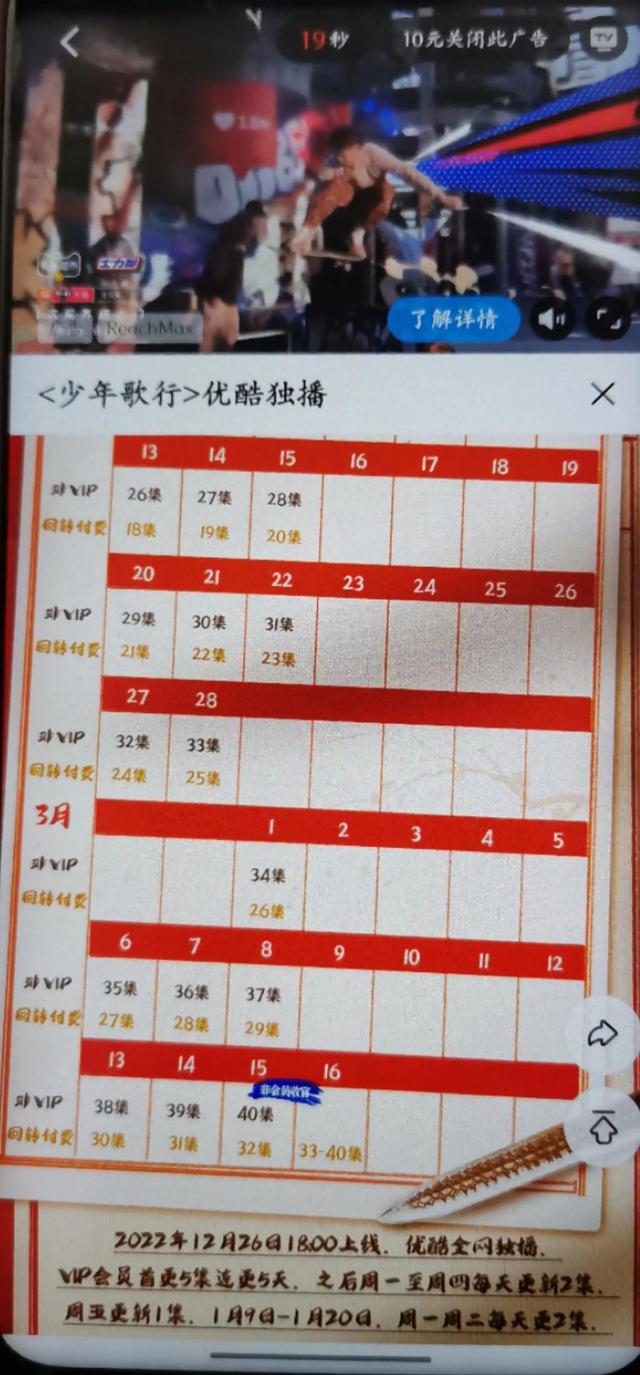 19秒 10元关闭此广告 TV
ReachMax
了解详情
<少年歌行>优酷独播
13 14 15 16 17 18 19
非VIP 26集 27集 28集
回转付费 18集 19集 20集
20 21 22 23 24 25 26
非VIP 29集 30集 31集
回转付费 21集 22集 23集
27 28
非VIP 32集 33集
回转付费 24集 25集
3月 1 2 3 4 5
非VIP 34集
回转付费 26集
6 7 8 9 10 11 12
非VIP 35集 36集 37集
回转付费 27集 28集 29集
13 14 15 16
非会员收官
非VIP 38集 39集 40集
回转付费 30集 31集 32集 33-40集
2022年12月26日18:00上线，优酷全网独播，
VIP会员首更5集连更5天，之后周一至周四每天更新2集，
周五更新1集，1月9日-1月20日，周一周二每天更2集，